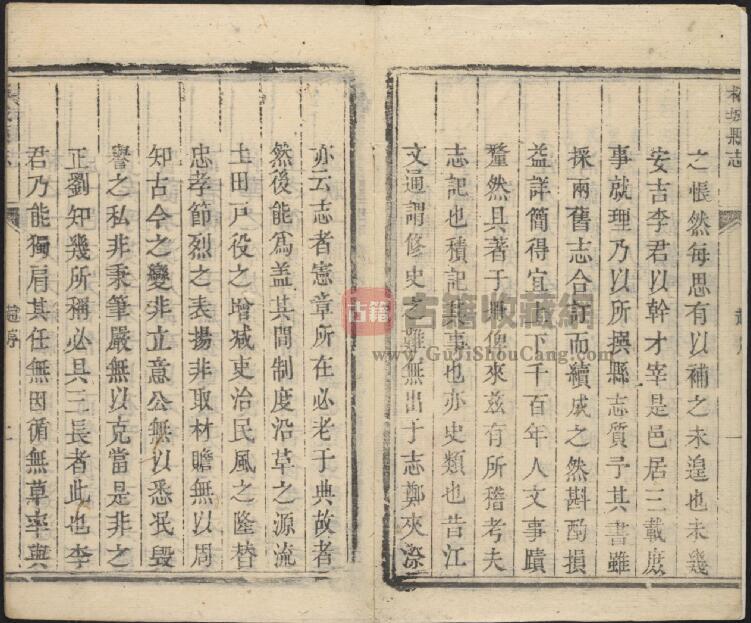 之悵然每思有以補之未遑也未幾
安吉李君以幹才宰是邑居三載庶
事就理乃以所撰縣志質予其書雖
採兩舊志合訂而續成之然斟酌損
益詳簡得宜上下千百年人文事蹟
釐然具著于冊俾來茲有所稽考夫
志記也積記其事也亦史類也昔江
文通謂修史之難無出于志鄭夾漈
亦云志者憲章所在必老于典故者
然後能為蓋其間制度沿革之源流
土田戸役之增减吏治民風之隆替
忠孝節烈之表揚非取材贍無以周
知古今之變非立意公無以悉泯毀
譽之私非秉筆嚴無以克當是非之
正劉知幾所稱必具三長者此也李
君乃能獨肩其任無因循無草率與
縣志
趙序
一
趙序
二
古籍收藏網
www.GuJiShouCang.com
古籍